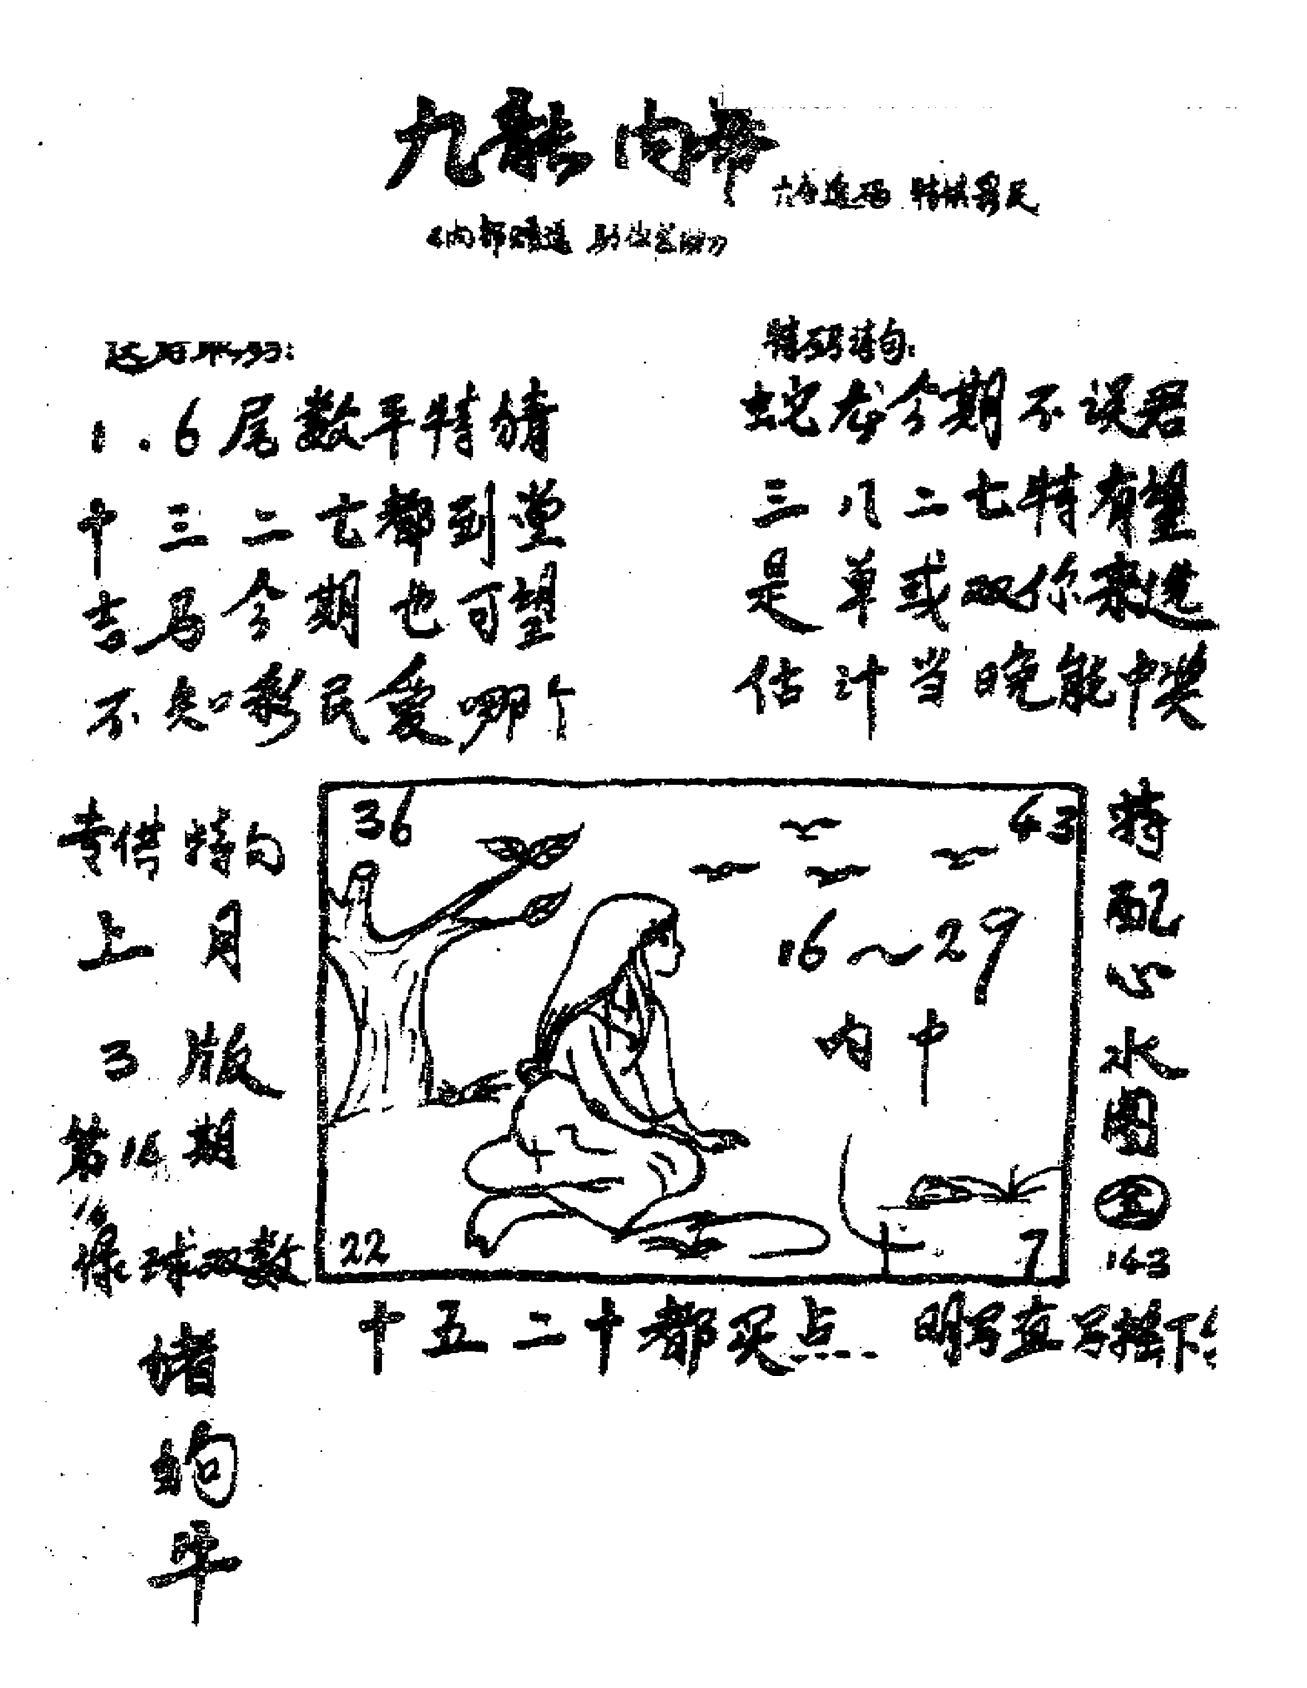 九龙内帝
六合透码 特供彩民
特码诗句:
1.6尾数平特猜
十三二七都到堂
吉马今期也可望
不知彩民爱哪个
蛇龙今期不误君
三八二七特有望
是单或双你来选
估计当晚能中奖
专供特句
上月
3版
第16期
16
绿球双数
36
43
16~29
内中
22
7
特配心水图
143
十五二十都买点
明写直写
猪
狗
牛